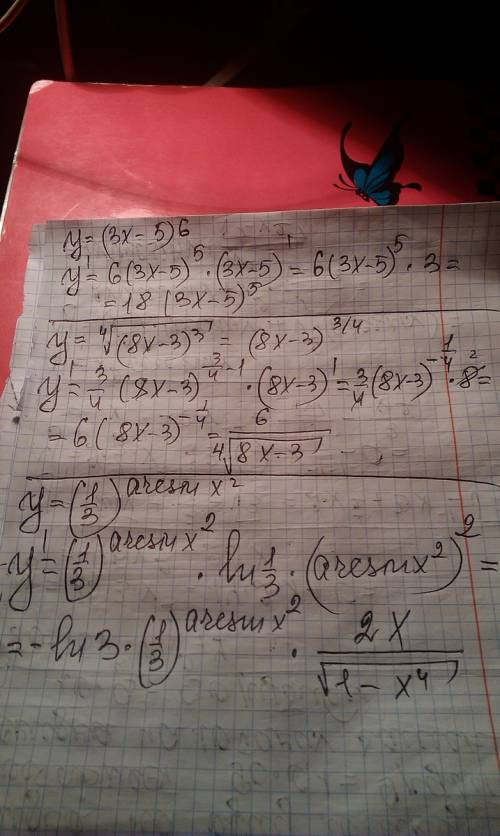 y = (3x - 5)^6
y' = 6(3x-5)^5 · (3x-5)' = 6(3x-5)^5 · 3 =
= 18 (3x-5)^5
y = ∜((8x-3)^3) = (8x-3)^(3/4)
y' = 3/4 (8x-3)^(3/4 - 1) · (8x-3)' = 3/4 (8x-3)^(-1/4) · 8^2 =
= 6(8x-3)^(-1/4) = 6/∜(8x-3)
y = (1/3)^(arcsin x^2)
y' = (1/3)^(arcsin x^2) · ln 1/3 · (arcsin x^2)^2 =
= -ln 3 · (1/3)^(arcsin x^2) · 2x/√(1 - x^4)